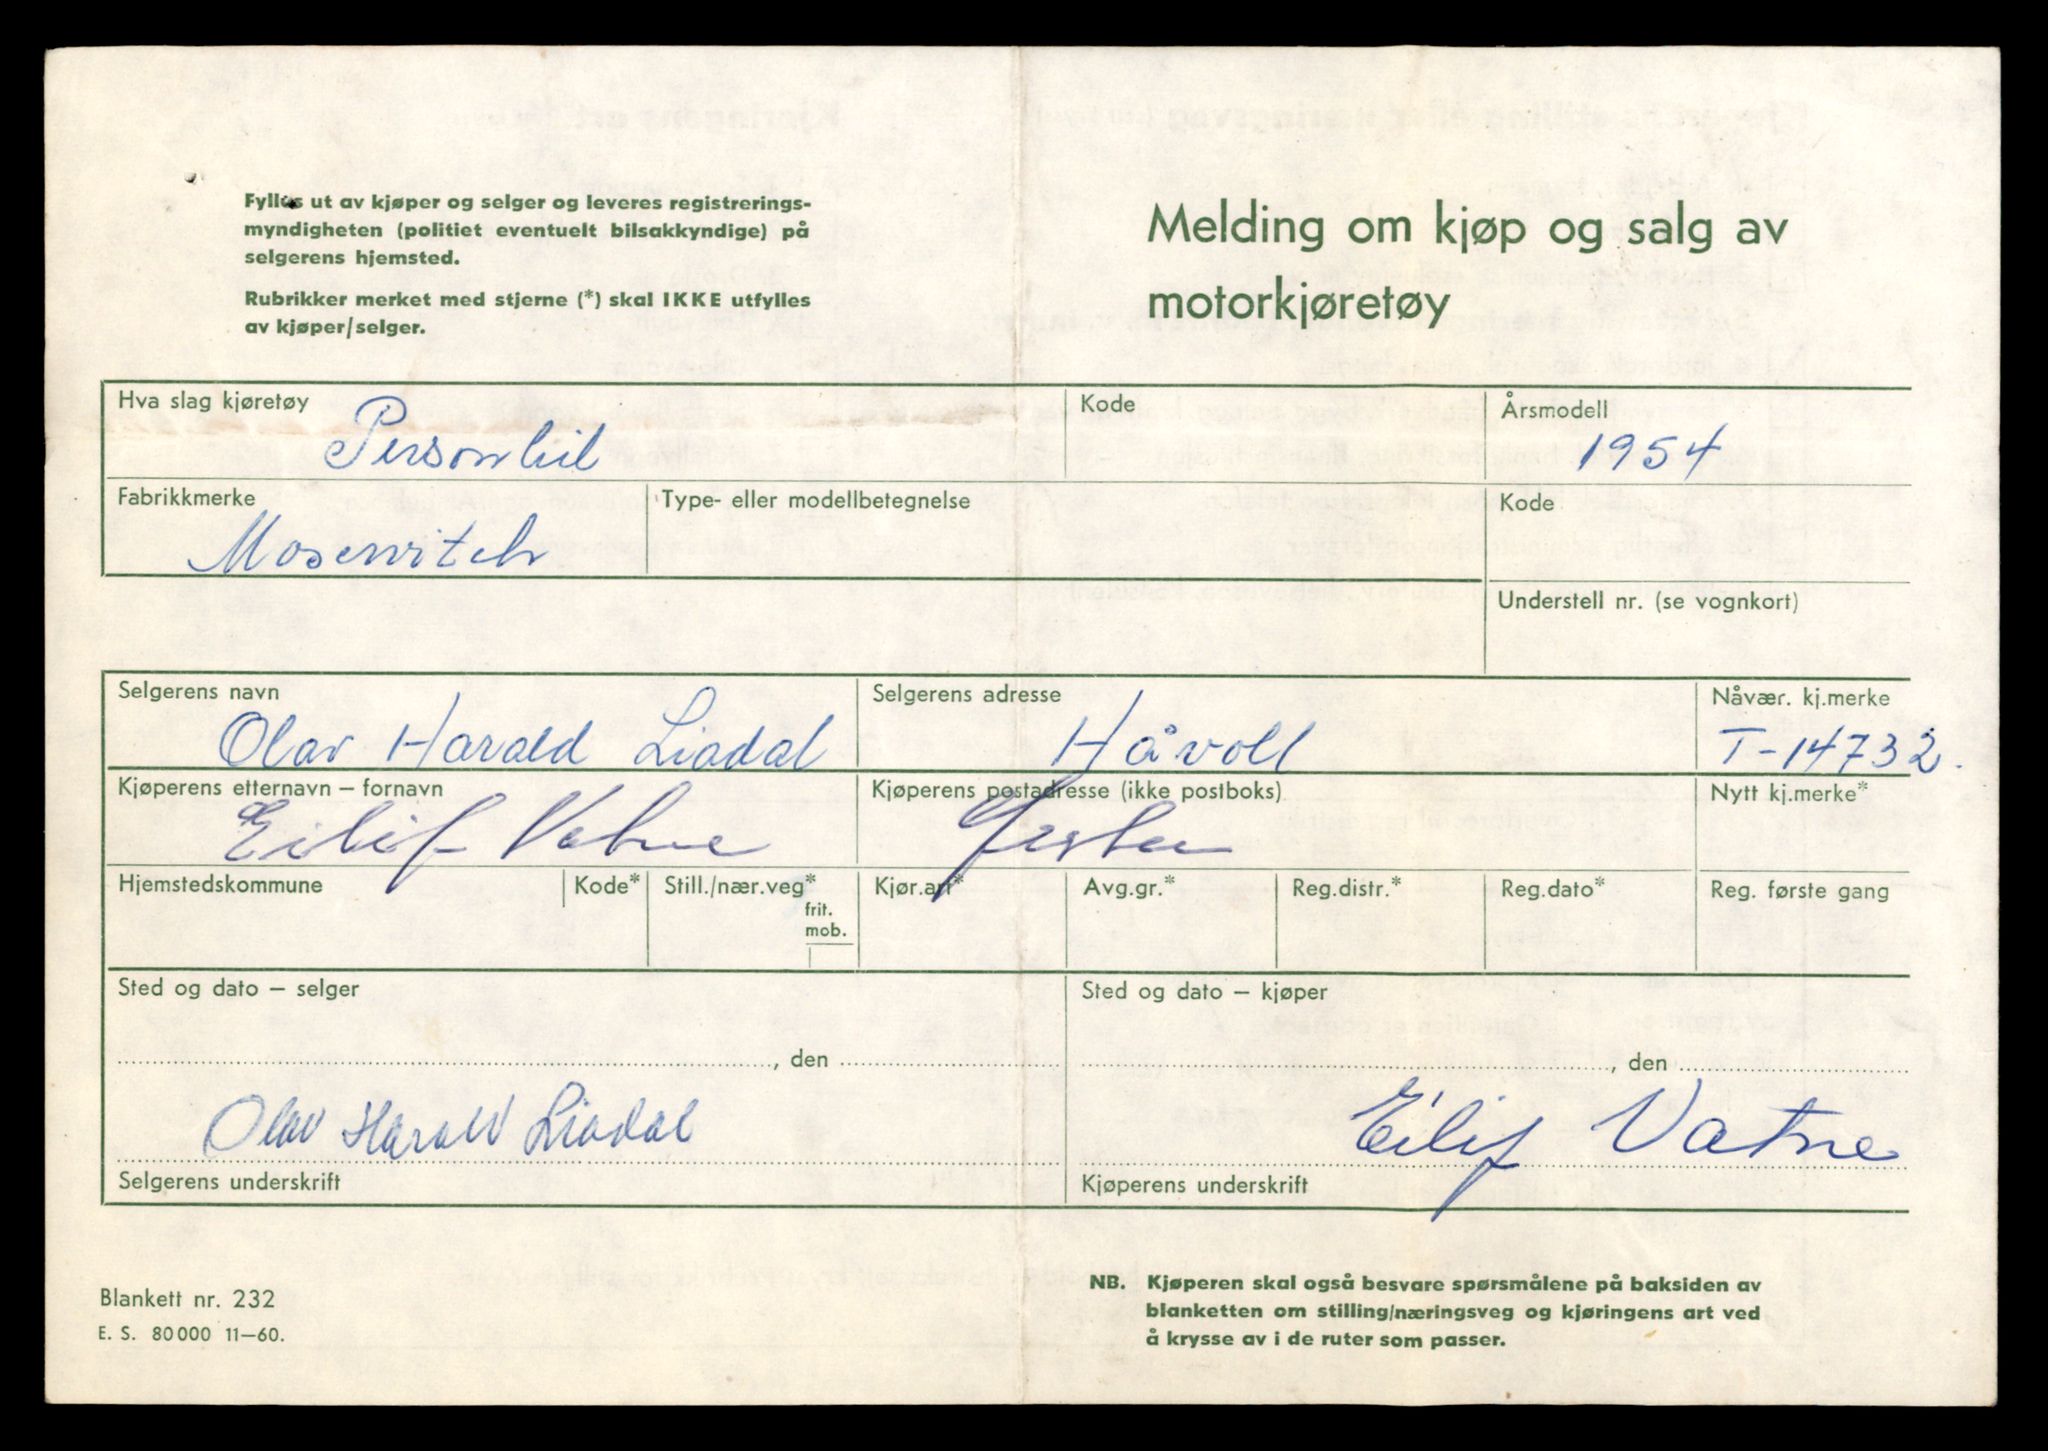 Fylles ut av kjøper og selger og leveres registrerings-
myndigheten (politiet eventuelt bilsakkyndige) på
selgerens hjemsted.
Rubrikker merket med stjerne (*) skal IKKE utfylles
av kjøper/selger.
Melding om kjøp og salg av
motorkjøretøy
Hva slag kjøretøy
Personbil
Kode
Årsmodell
1954
Fabrikkmerke
Moscwitch
Type- eller modellbetegnelse
Kode
Understell nr. (se vognkort)
Selgerens navn
Olav Harald Liadal
Selgerens adresse
Håvoll
Nåvær. kj.merke
T-14732.
Kjøperens etternavn – fornavn
Eilif Vatne
Kjøperens postadresse (ikke postboks)
Nytt kj.merke*
Hjemstedskommune
Kode*
Still./nær.veg*
frit.
mob.
Kjør.art*
Avg.gr.*
Reg.distr.*
Reg.dato*
Reg. første gang
Sted og dato – selger
, den
Olav Harald Liadal
Selgerens underskrift
Sted og dato – kjøper
, den
Eilif Vatne
Kjøperens underskrift
Blankett nr. 232
E. S. 80000 11–60.
NB. Kjøperen skal også besvare spørsmålene på baksiden av
blanketten om stilling/næringsveg og kjøringens art ved
å krysse av i de ruter som passer.